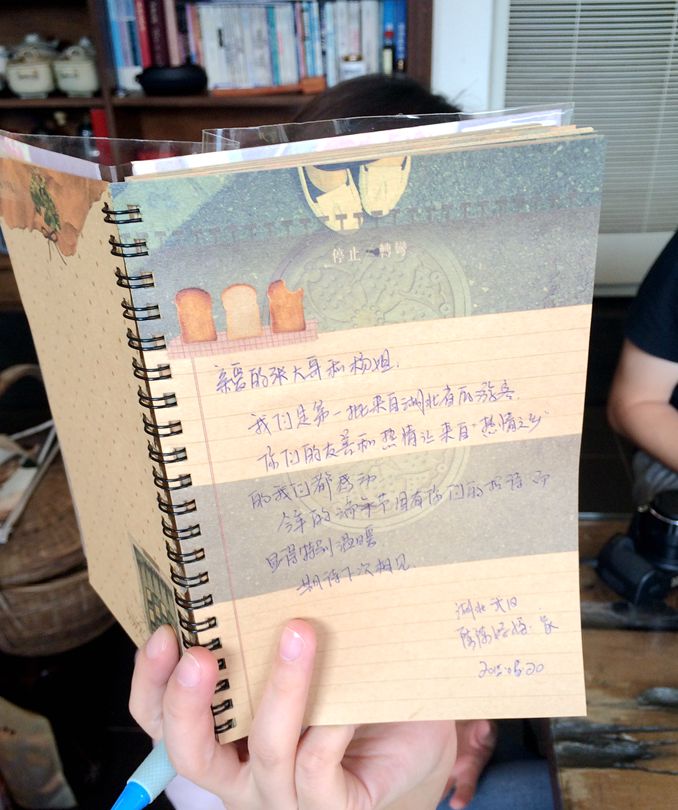 停止 轉彎
亲爱的张大哥和杨姐.
我们是第一批来自湖北省的游客.
你们的友善和热情让来自"热情之乡"
的我们都感动
今年的端午节因有你们的招待而
显得特别温暖
期待下次相见.
湖北